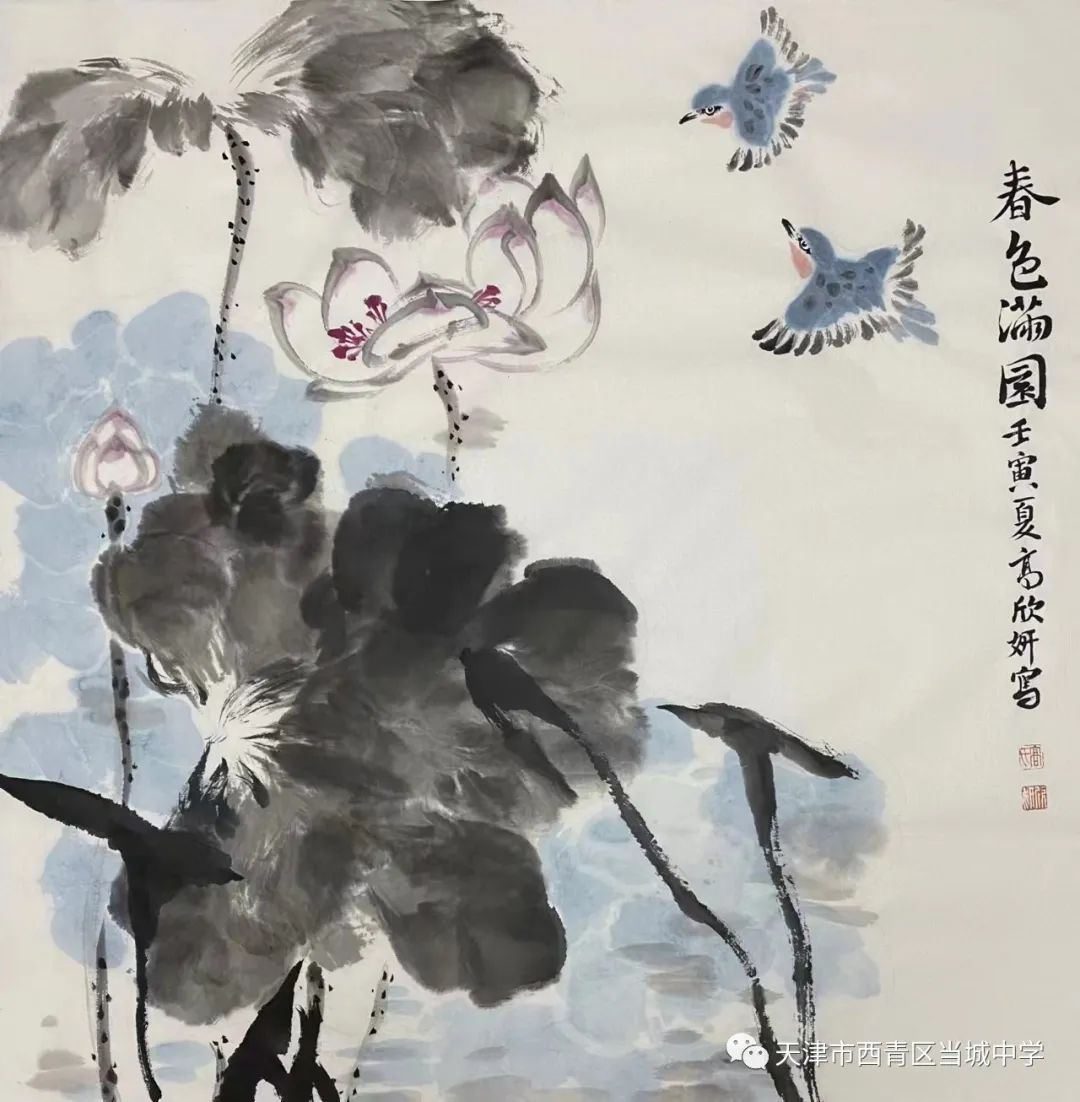 春色满園
壬寅夏高欣妍寫
天津市西青区当城中学